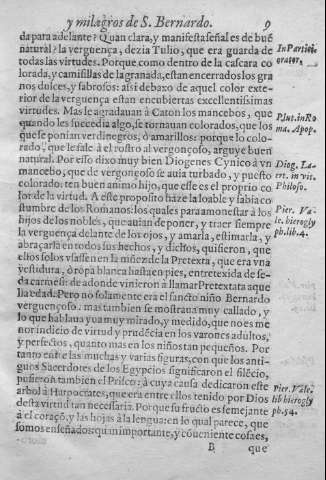 y milagros de S. Bernardo. 9
da para adelante? Quan clara, y manifesta señal es de buē
natural? la verguença, dezia Tulio, que era guarda de
todas las virtudes. Porque como dentro de la cascara co
lorada, y camisillas de la granada, estan encerrados los gra
nos dulces, y sabrosos: assi debaxo de aquel color exte-
rior de la verguença estan encubiertas excellentissimas
virtudes. Mas le agradauan à Caton los mancebos, que
quando les sucedia algo, se tornauan colorados, que los
que se ponian verdinegros, ò amarillos: porque lo colo-
rado, que le sale à el rostro al vergonçoso, arguye buen
natural. Por esso dixo muy bien Diogenes Cynico à vn
mancebo, que de vergonçoso se auia turbado, y puesto
colorado: ten buen animo hijo, que esse es el proprio co
lor de la virtud. A este proposito haze la loable y sabia co
stumbre de los Romanos: los quales para amonestar à los
hijos de los nobles, que auian de poner, y traer siempre
la verguença delante de los ojos, y amarla, estimarla, y
abraçarla en todos sus hechos, y dichos, quisieron, que
ellos solos vsassen en la niñez de la Pretexta, que era vna
vestidura, ò ropa blanca hasta en pies, entretexida de se-
da carmesi: de adonde vinieron à llamar Pretextata aque
lla edad. Pero no solamente era el sancto niño Bernardo
verguençoso: mas tambien se mostraua muy callado, y
lo que hablaua yua muy mirado, y medido, que no es me
nor indicio de virtud y prudēcia en los varones adultos,
y perfectos, quanto mas en los niños tan pequeños. Por
tanto entre las muchas y varias figuras, con que los anti-
guos Sacerdotes de los Egypcios significaron el silēcio,
pusieron tambien el Prisco: à cuya causa dedicaron este
arbol à Harpocrates, que era entre ellos tenido por Dios
desta virtud tan necessaria. Porque su fructo es semejante
à el coraçō, y las hojas à la lengua: en lo qual parece, que
somos enseñados: quan importante, y cōueniente cosa es,
B que
In Partici-
orator.
Plut. in Ro
ma. Apop.
Diog. La-
ert. in vit.
Philoso.
Pier. Va-
le. hierogly
ph. lib. 4.
Pier. Vale.
lib hierogly
ph. 54.